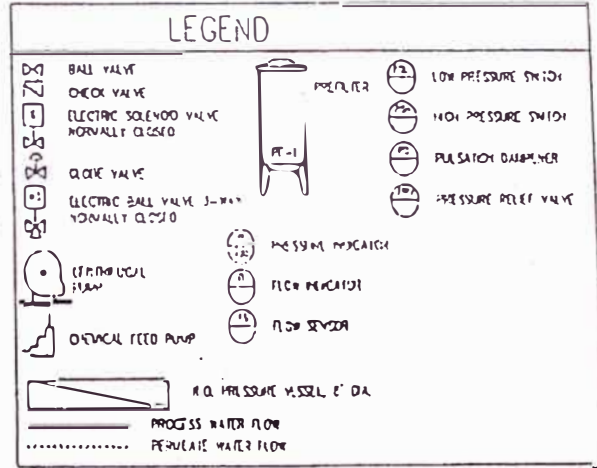 LEGEND
BALL VALVE
CHECK VALVE
ELECTRIC SOLENOID VALVE
NORMALLY CLOSED
GLOBE VALVE
ELECTRIC BALL VALVE 3-WAY
NORMALLY CLOSED
CENTRIFUGAL
PUMP
CHEMICAL FEED PUMP
PREFILTER
PF-1
PRESSURE INDICATOR
FLOW INDICATOR
FLOW SENSOR
LOW PRESSURE SWITCH
HIGH PRESSURE SWITCH
PULSATION DAMPENER
PRESSURE RELIEF VALVE
R.O. PRESSURE VESSEL, 8" DIA.
PROCESS WATER FLOW
PERMEATE WATER FLOW